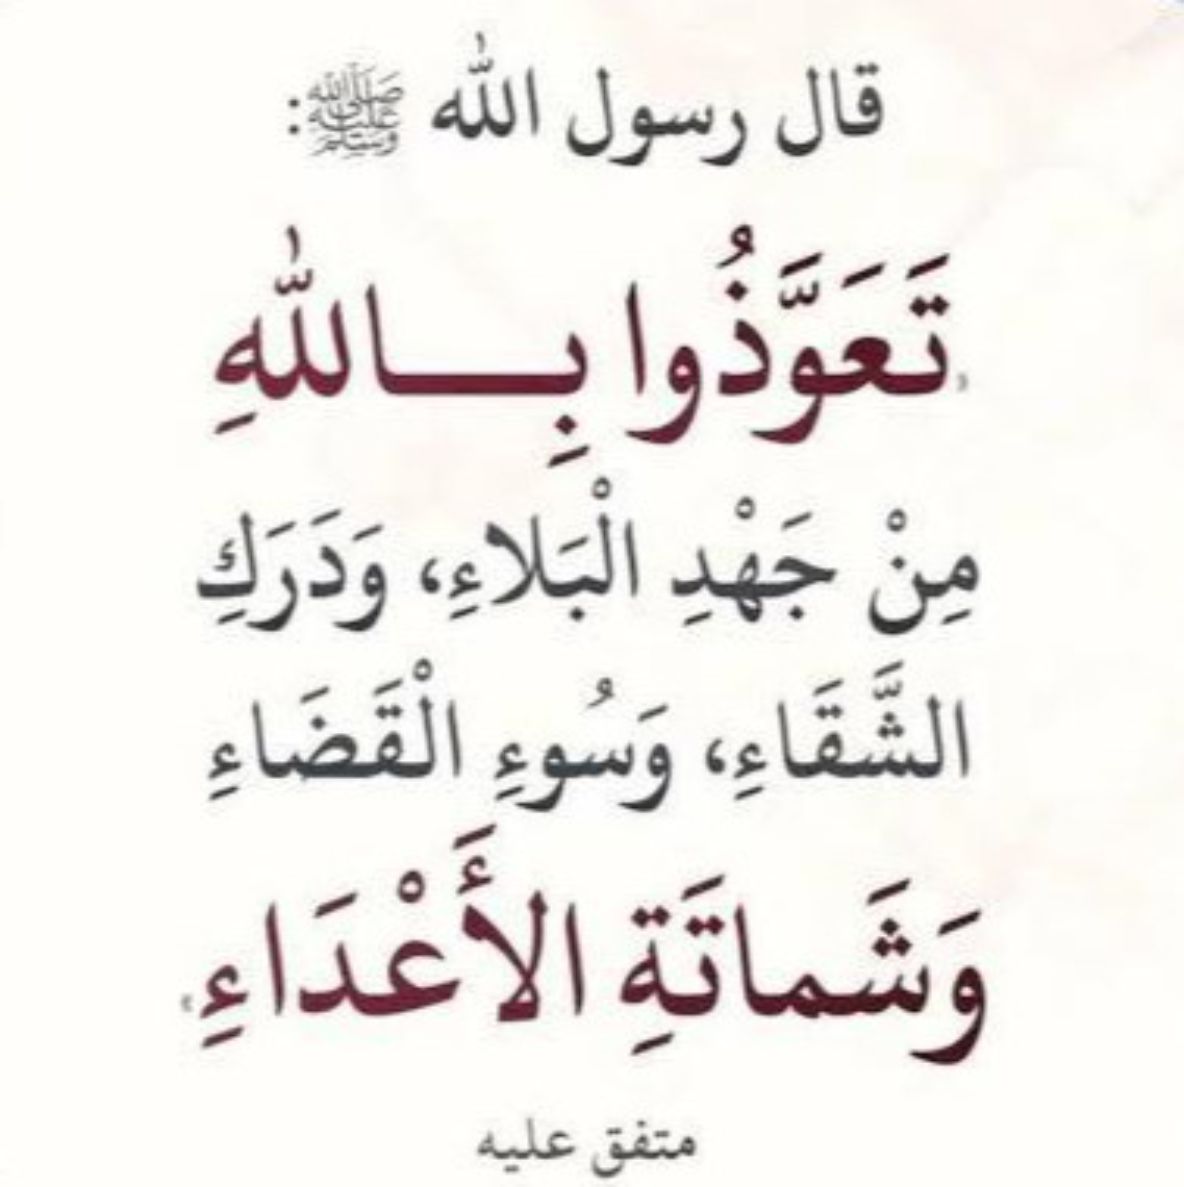 قال رسول الله ﷺ:
«تَعَوَّذُوا بِـــاللهِ
مِنْ جَهْدِ الْبَلاءِ، وَدَرَكِ
الشَّقَاءِ، وَسُوءِ الْقَضَاءِ
وَشَماتَةِ الأَعْدَاءِ»
متفق عليه